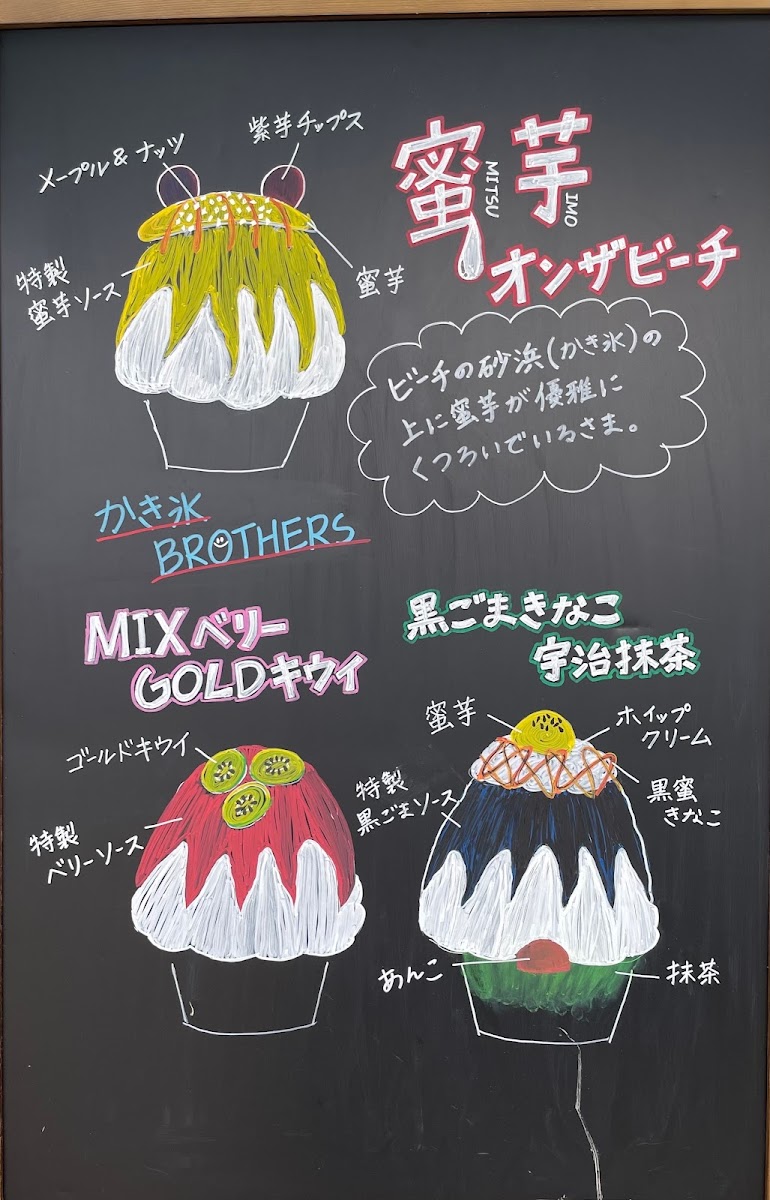 蜜芋
MITSU
IMO
オンザビーチ
メープル&ナッツ
紫芋チップス
特製
蜜芋ソース
蜜芋
ビーチの砂浜(かき氷)の
上に蜜芋が優雅に
くつろいでいるさま。
かき氷
BROTHERS
MIXベリー
GOLDキウイ
ゴールドキウイ
特製
ベリーソース
黒ごまきなこ
宇治抹茶
蜜芋
ホイップ
クリーム
特製
黒ごまソース
黒蜜
きなこ
あんこ
抹茶